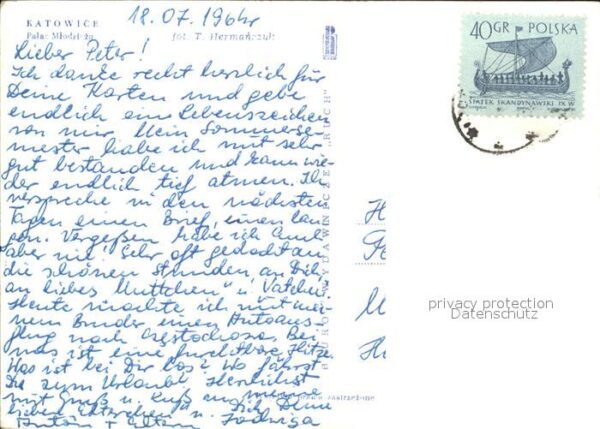 18.07.1964r
KATOWICE
Pałac Młodzieży
fot. T. Hermańczyk
Lieber Peter!
Ich danke recht herzlich für
Deine Karten und gebe
endlich ein Lebenszeichen
von mir. Mein Sommerse-
mester habe ich mit sehr
gut bestanden und kann wie-
der endlich tief atmen. Ich
verspreche in den nächsten
Tagen einen Brief, einen lan-
gen. Vergeßen habe ich
aber nie! Sehr oft gedacht an
die schönen Stunden, an Dich,
an liebes Muttchen u. Vatchen.
Heute machte ich mit mei-
nem Bruder einen Autoaus-
flug nach Częstochowa. Bei
uns ist eine furchtbare Hitze.
Was ist bei Dir los? Wo fährst
Du zum Urlaub? Herzlichst
mit Gruß u. Kuß an meine
lieben u. Dich Deine
Jadwiga
Antoni + Eltern
BIURO WYDAWNICZE „RUCH"
zastrzeżone
40 GR POLSKA
STATEK SKANDYNAWSKI IX W
H
M
H
privacy protection
Datenschutz